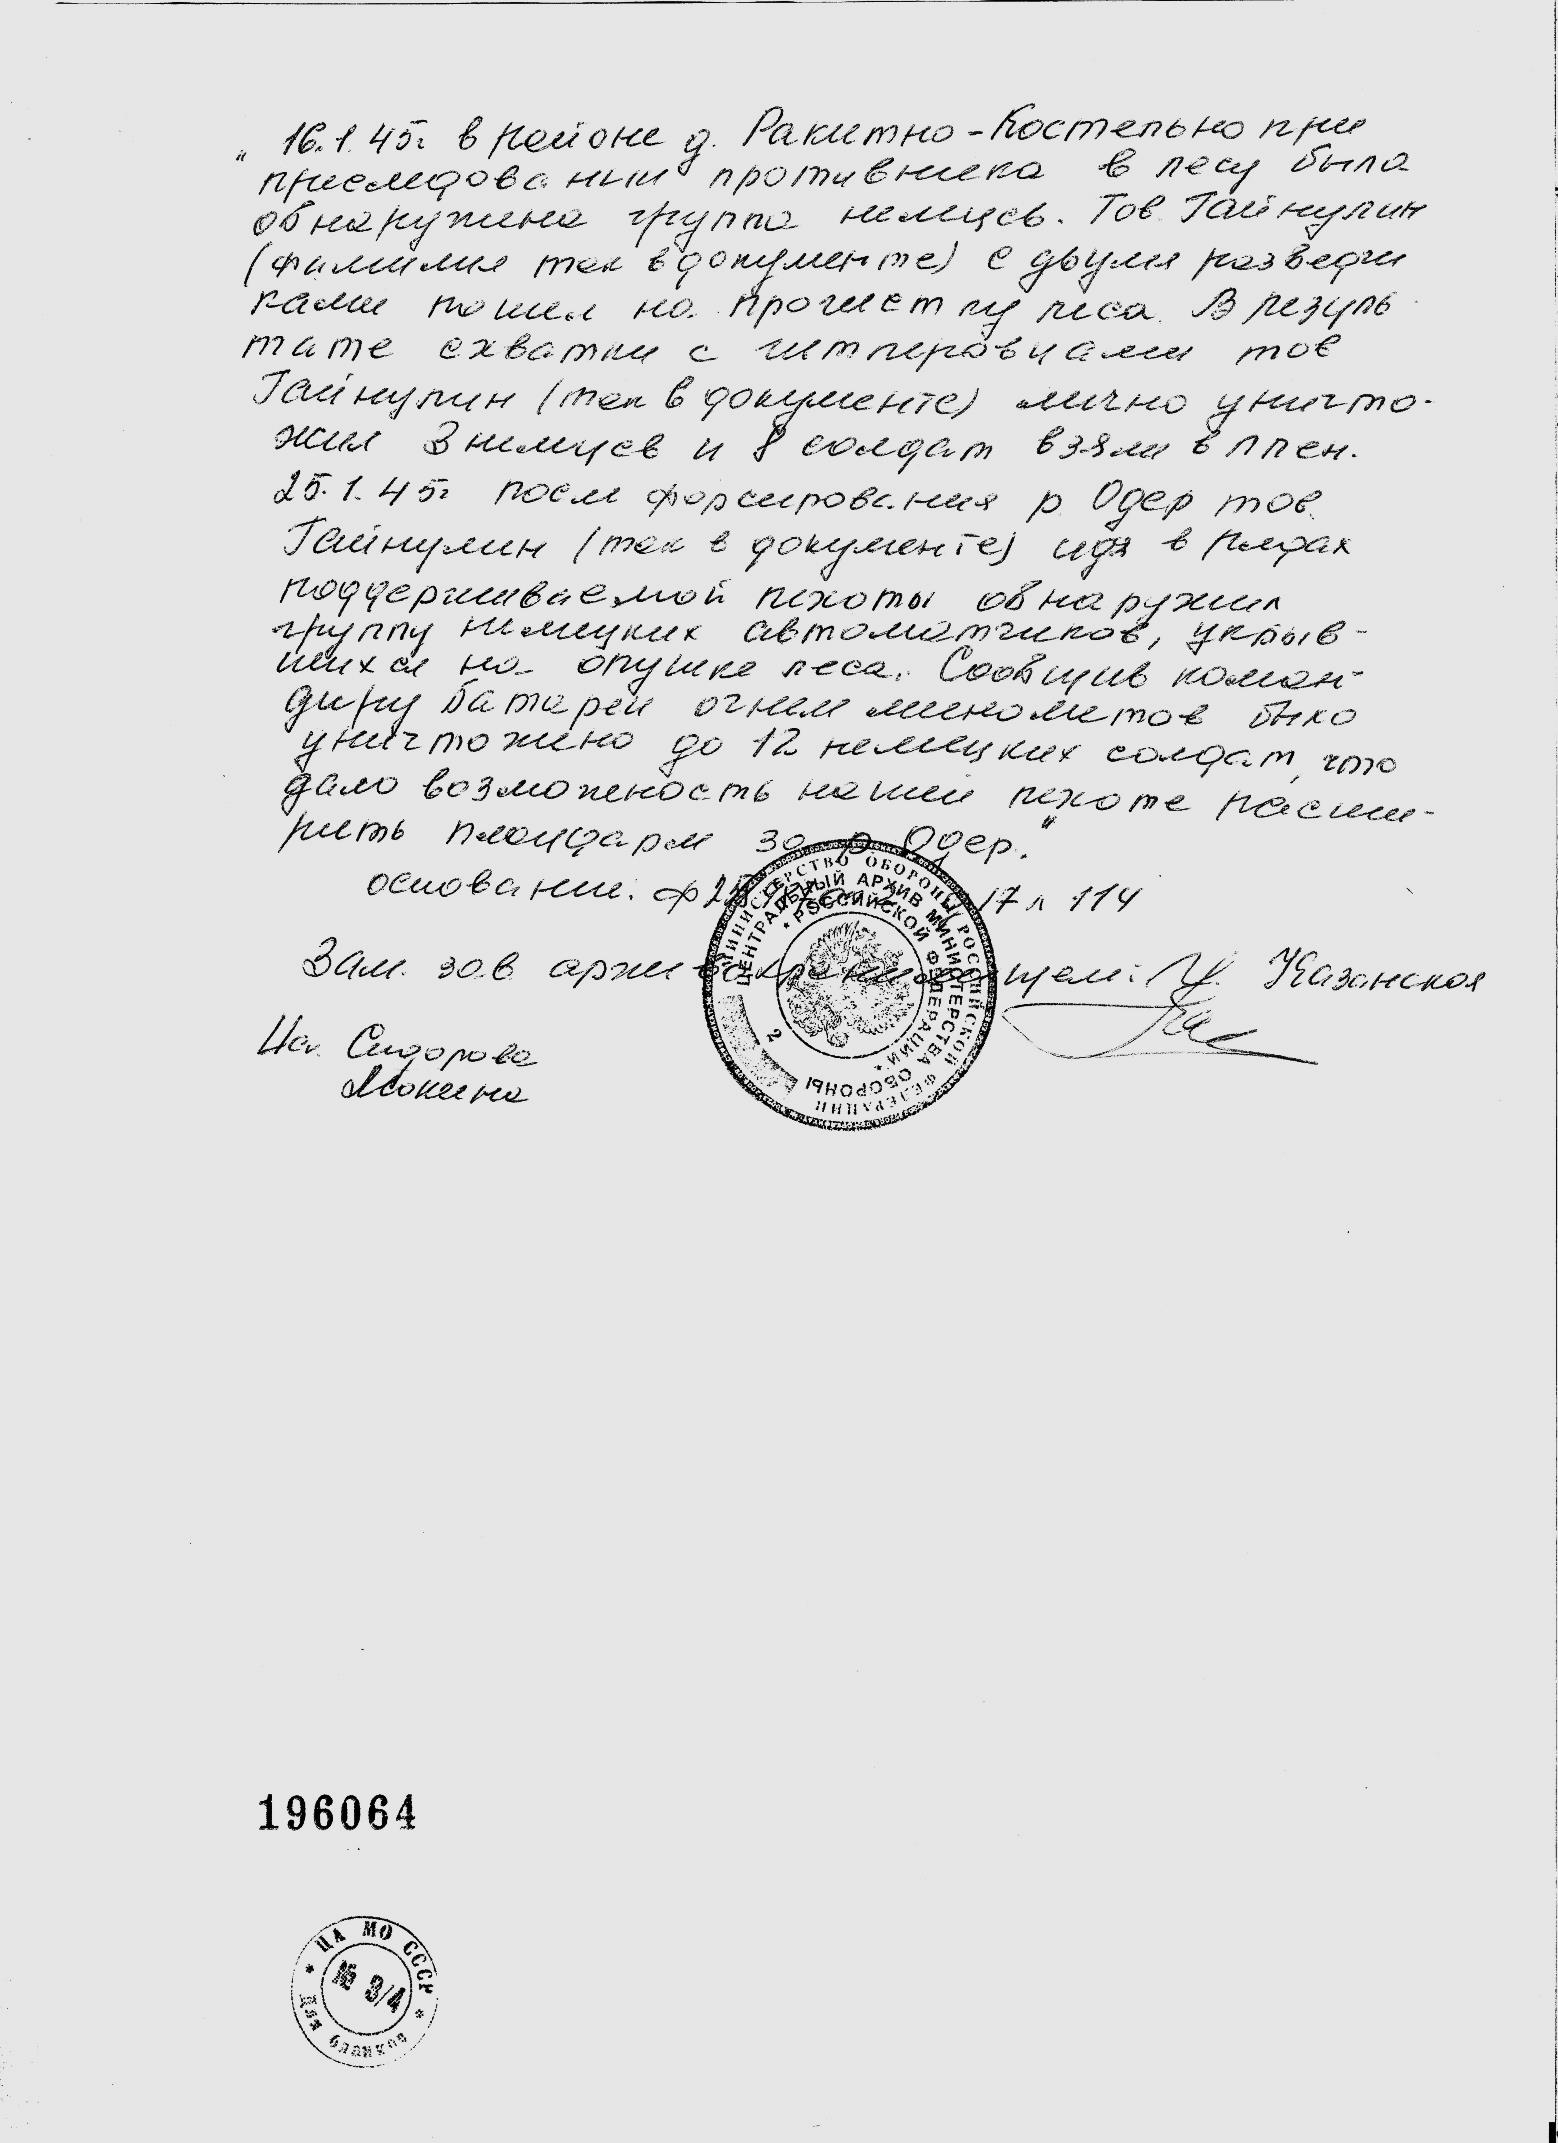 „ 16.1.45г. в районе д. Ракитно-Костельно при
приследовании противника в лесу была
обнаружена группа немцев. Тов. Гайнулин
(фамилия так в документе) с двумя разведчи
ками пошел на прочистку леса. В резуль
тате схватки с гитлеровцами тов
Гайнулин (так в документе) лично уничто-
жил 3 немцев и 8 солдат взяли в плен.
25.1.45г после форсирования р. Одер тов.
Гайнулин (так в документе) идя в рядах
поддерживаемой пехоты обнаружил
группу немецких автоматчиков, укрыв-
шихся на опушке леса. Сообщив коман-
диру батареи огнем минометов было
уничтожено до 12 немецких солдат, что
дало возможность нашей пехоте расши-
рить плацдарм за р. Одер."
основание: ф 17 л 114
Зам. зав архивохранилищем: Казанская
Исп. Сидорова
Мокина
МИНИСТЕРСТВО ОБОРОНЫ РОССИЙСКОЙ ФЕДЕРАЦИИ
ЦЕНТРАЛЬНЫЙ АРХИВ МИНИСТЕРСТВА ОБОРОНЫ
* РОССИЙСКОЙ ФЕДЕРАЦИИ *
2
196064
* ЦА МО СССР *
№ 3/4
Для бланков